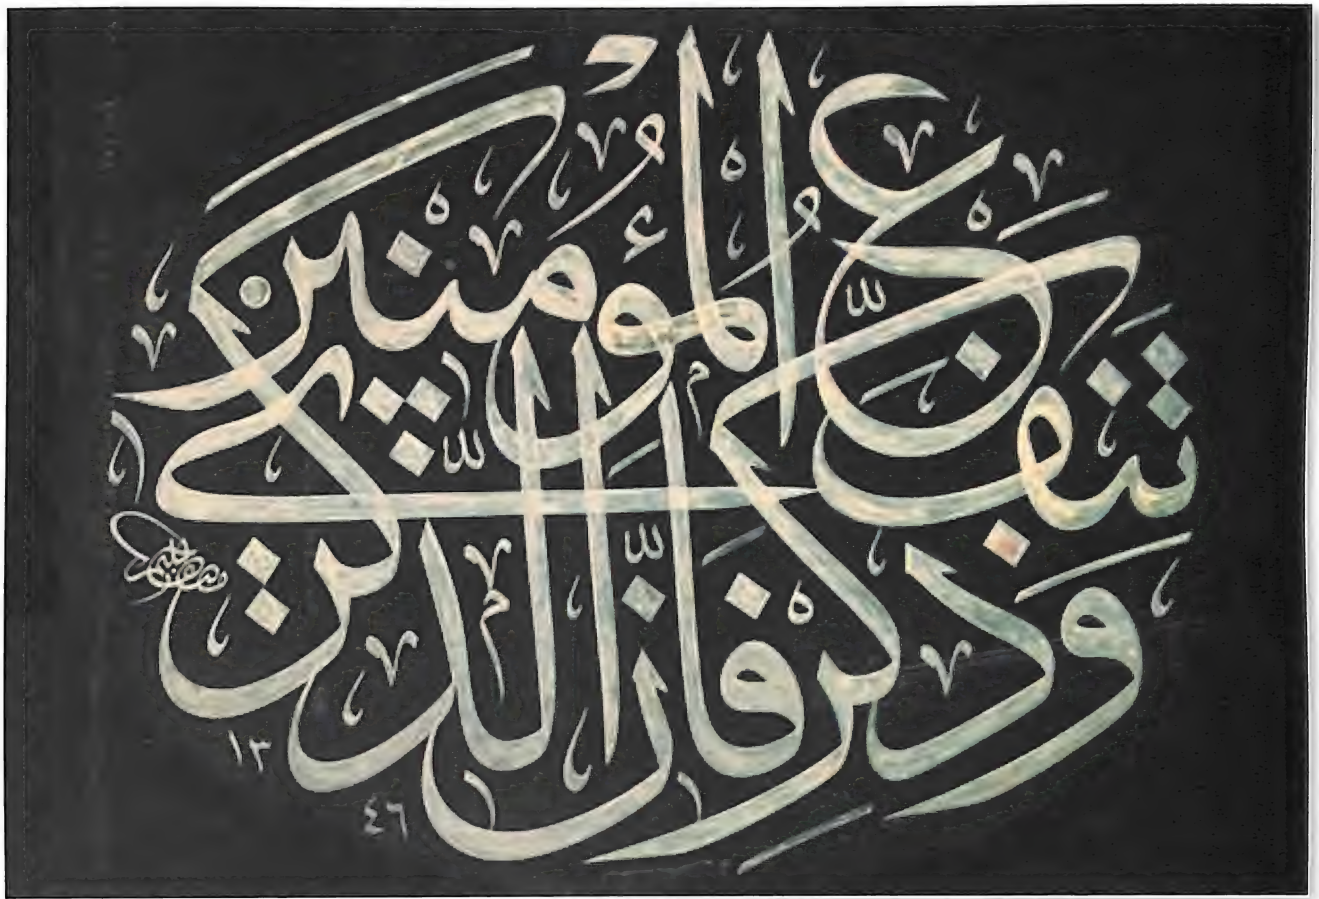 وَذَكِّرْ فَإِنَّ الذِّكْرَى تَنْفَعُ الْمُؤْمِنِينَ
١٣
٤٦